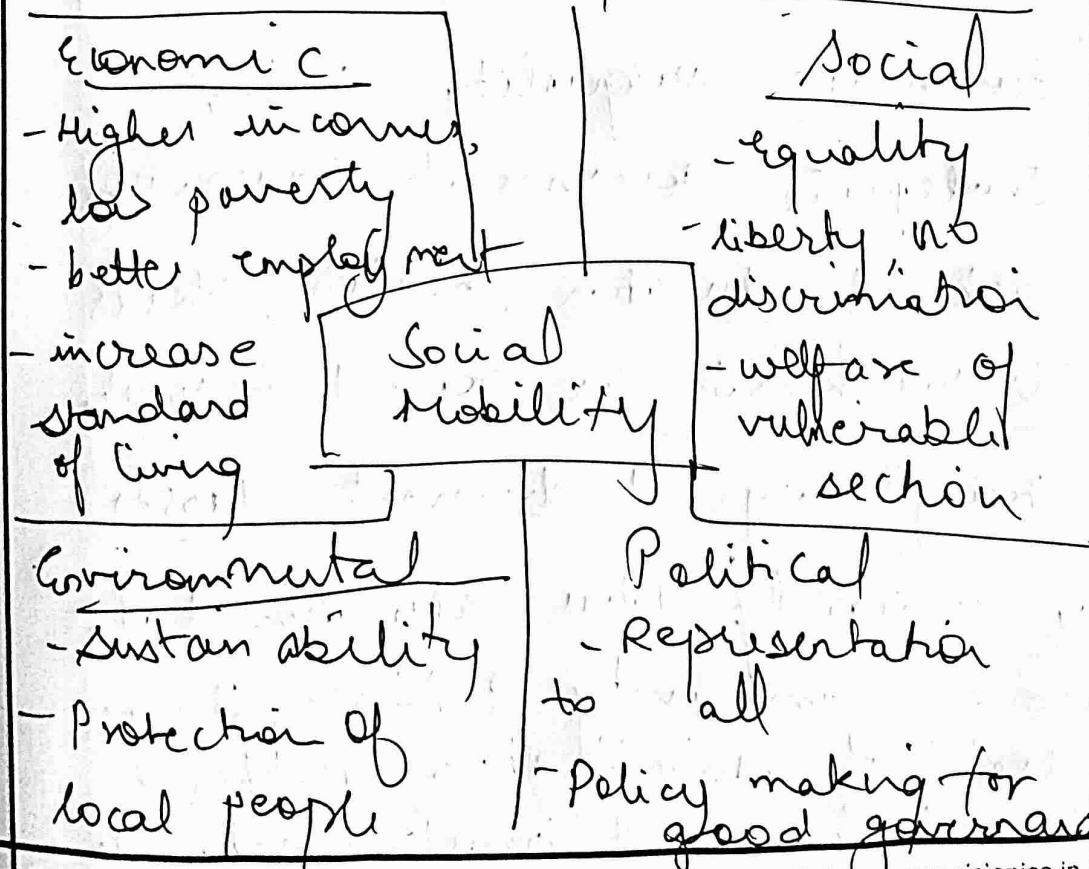 Economic.
- Higher incomes,
low poverty
- better employment
- increase
standard
of living
Social
- Equality
- liberty, no
discrimination
- welfare of
vulnerable
section
Social
Mobility
Environmental
- Sustainability
- Protection of
local people
Political
- Representation
to all
- Policy making for
good governance